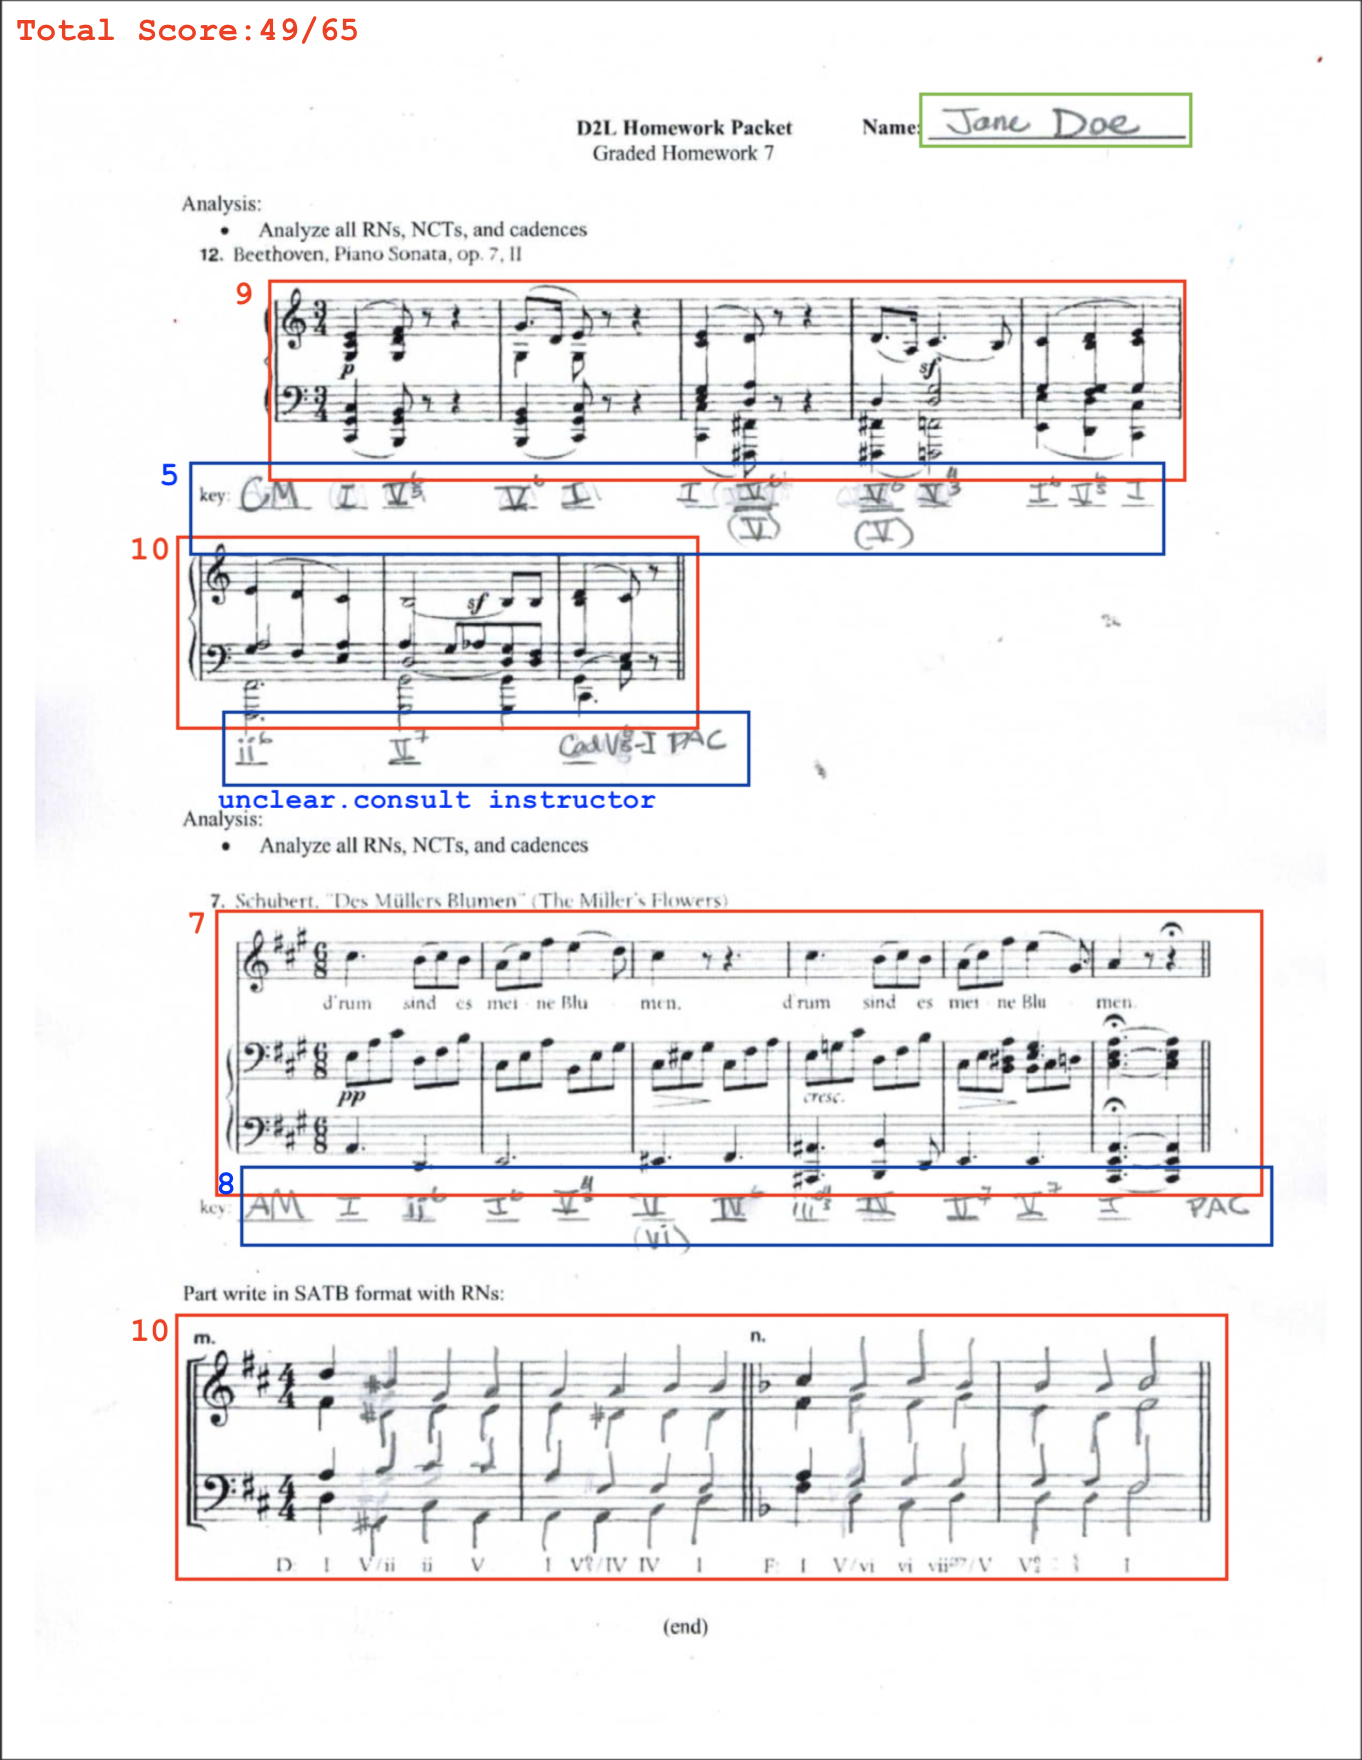 Total Score:49/65
D2L Homework Packet Name: Jane Doe
Graded Homework 7
Analysis:
• Analyze all RNs, NCTs, and cadences
12. Beethoven, Piano Sonata, op. 7, II
9
p
sf
5
key: CM I V6/5 V6 I I V6 V6 V4/3 I6 V6/5 I
(V) (V)
10
sf
ii6 V7 Cad V I PAC
unclear.consult instructor
Analysis:
• Analyze all RNs, NCTs, and cadences
7. Schubert, "Des Müllers Blumen" (The Miller's Flowers)
7
d'rum sind es mei - ne Blu - men, d'rum sind es mei - ne Blu - men.
pp cresc.
8
key: AM I ii6 I6 V4/3 V IV6 iii4/3 IV V7 V7 I PAC
(vi)
Part write in SATB format with RNs:
10
m. n.
D: I V/ii ii V I /IV IV I F: I V/vi vi viiø7/V I
(end)